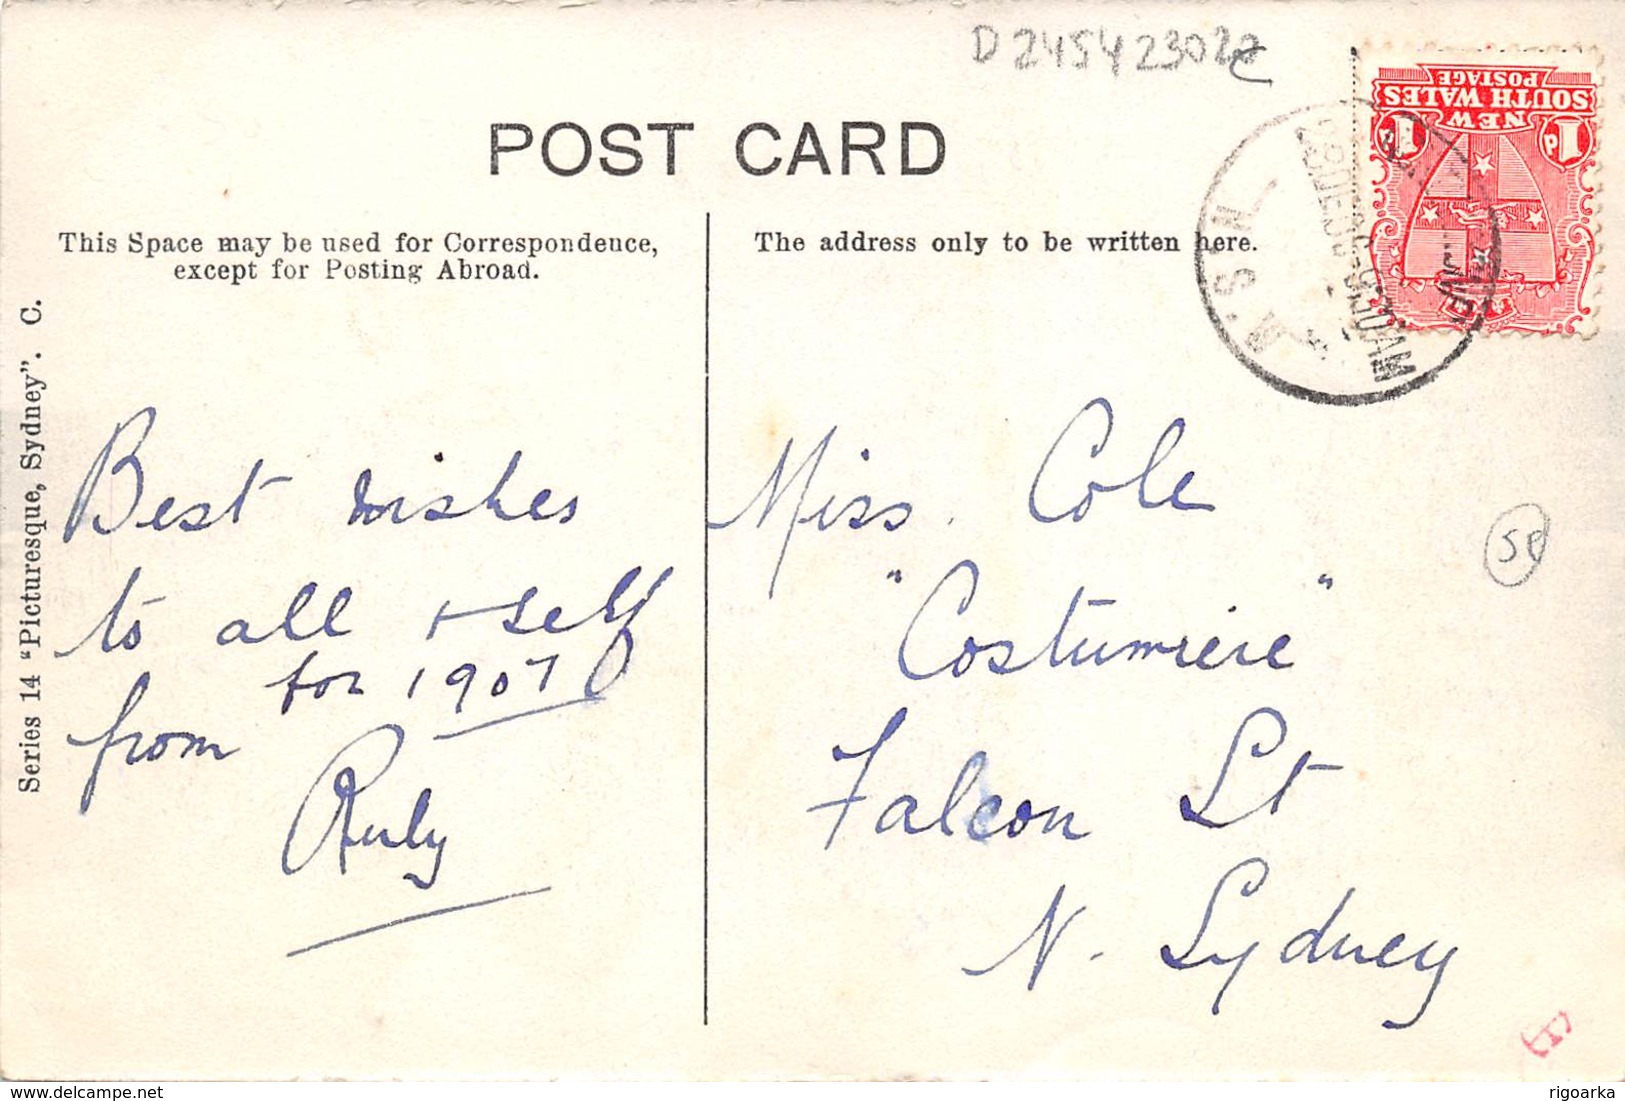 D2454 2302
POST CARD
This Space may be used for Correspondence,
except for Posting Abroad.
The address only to be written here.
NEW
SOUTH WALES
POSTAGE
1d
1d
N.S.W
9 30 AM
Series 14 "Picturesque, Sydney". C.
Best wishes
to all + self
for 1907
from
Ruby
Miss. Cole
"Costumiere"
Falcon St
N. Sydney
delcampe.net
rigoarka